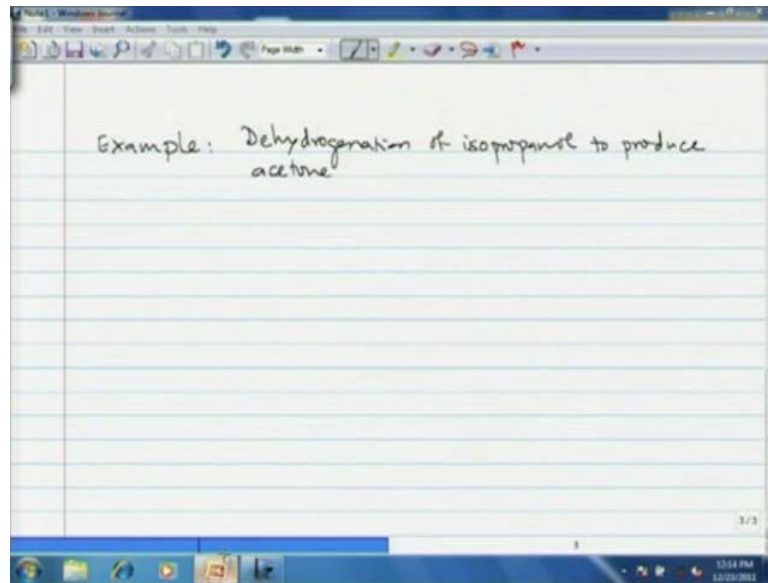 Note1 - Windows Journal
File Edit View Insert Actions Tools Help
Page Width
Example: Dehydrogenation of isopropanol to produce
acetone
3/3
3
12:54 PM
12/23/2011